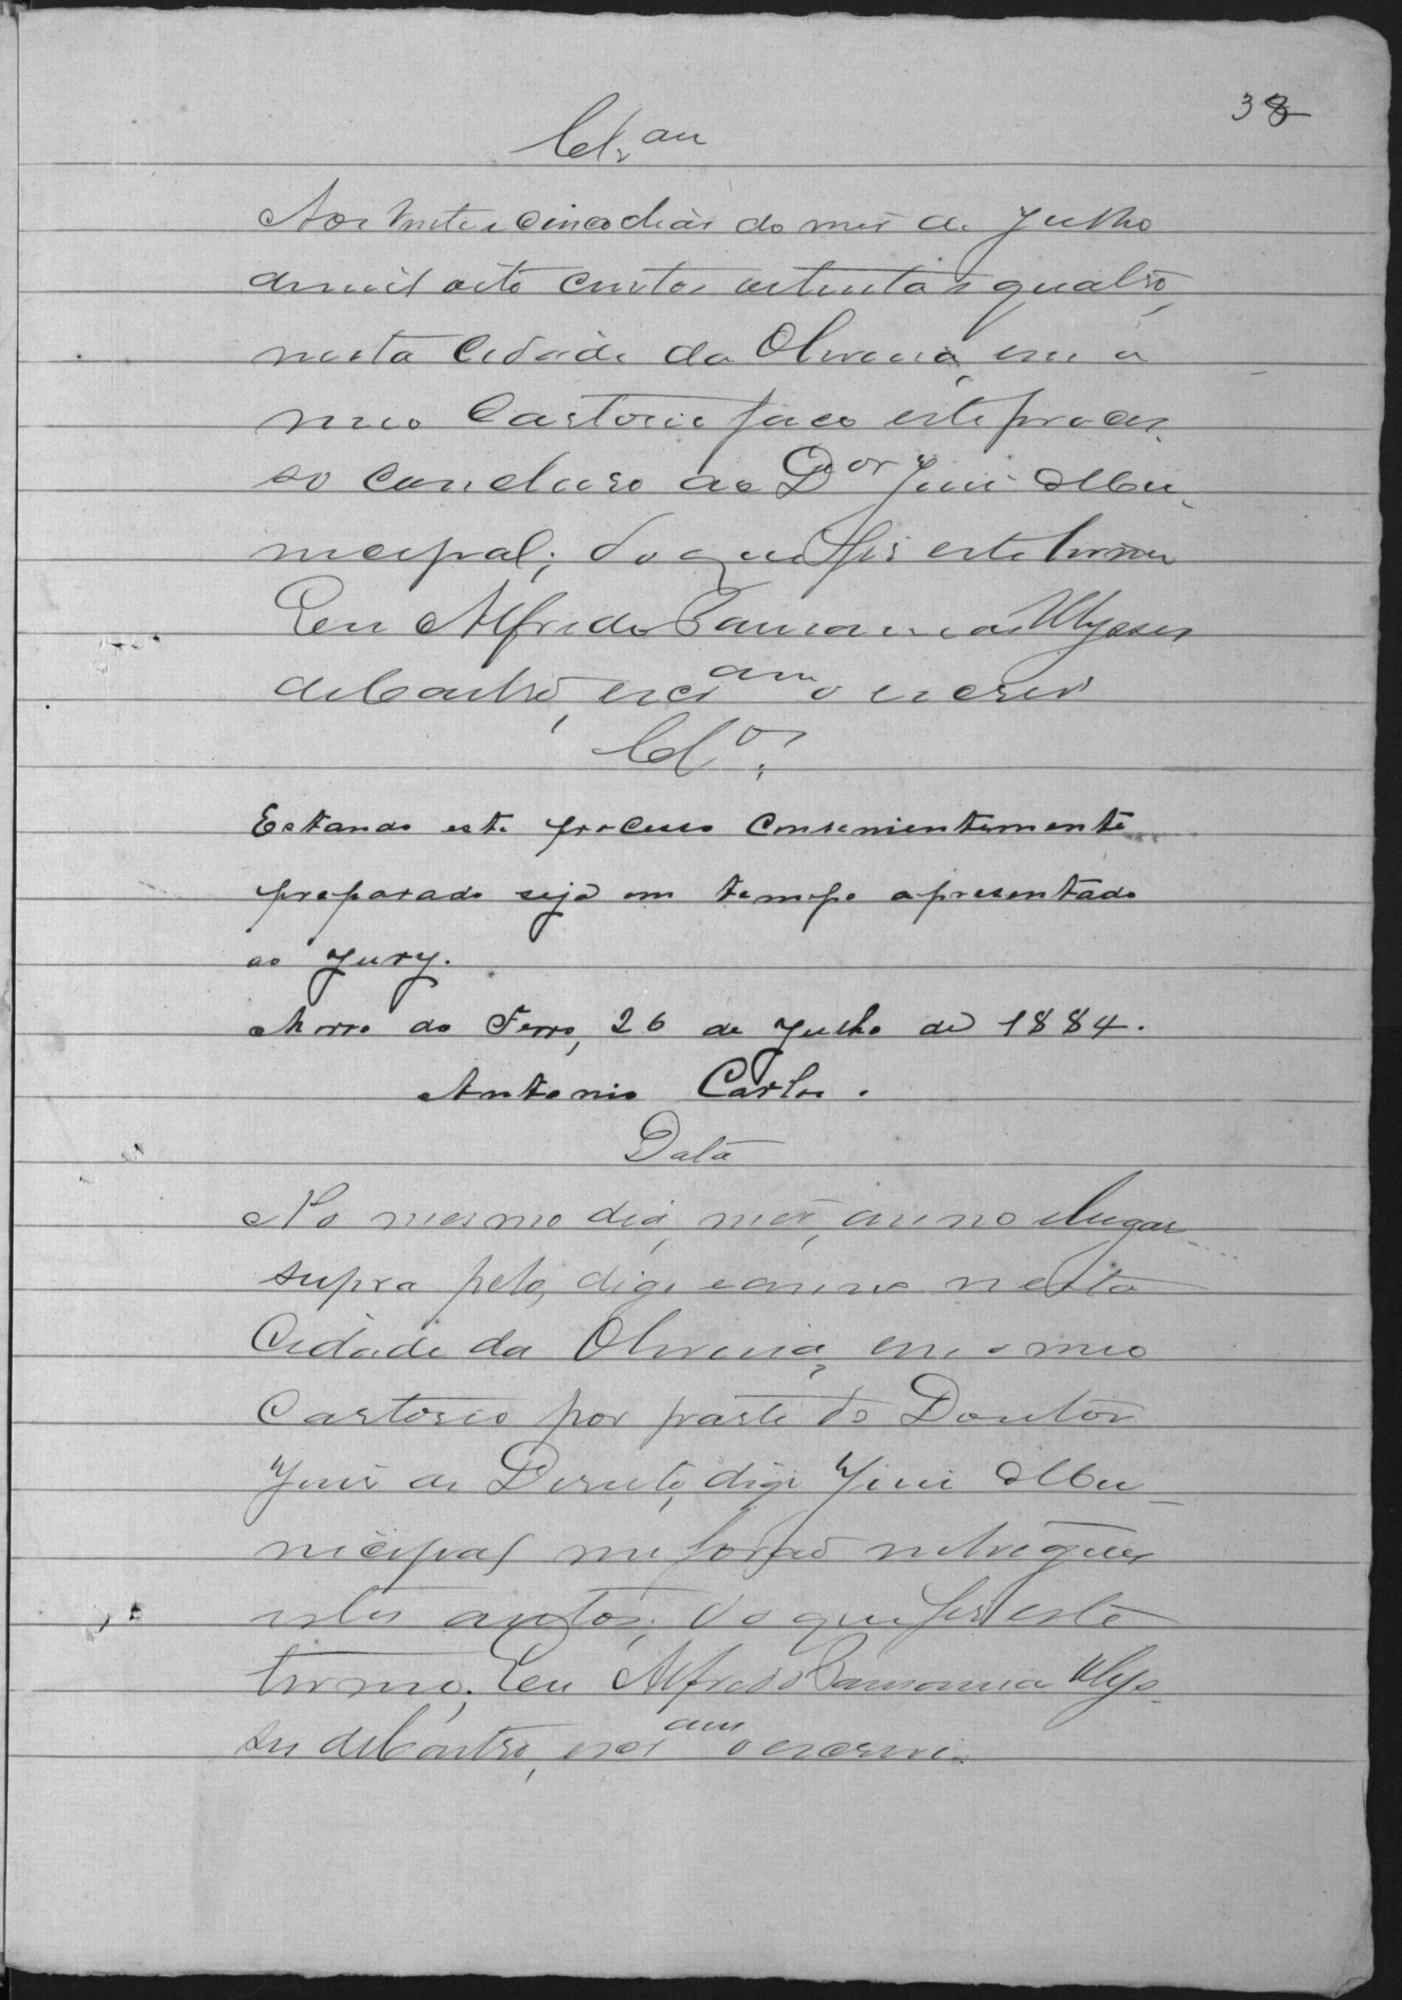 38
Cl.am
Aos vinte e cinco dias do mes de Julho
de mil oito centos oitenta e quatro,
nesta Cidade da Oliveira, em o
meo Cartorio faco este proces-
so concluso ao Dor Juis Mu-
nicipal; do que fis este termo
Eu Alfredo Ulysses
de Castro, escram o escrevi
Clos
Estando este processo convenientemente
preparado seja em tempo apresentado
ao Jury.
Morro do Ferro, 26 de Julho de 1884.
Antonio Carlos.
Data
No mesmo dia, mes, anno e lugar
supra pelo, digo e anno nesta
Cidade da Oliveira, em o meo
Cartorio por parte do Doutor
Juis de Direito, digo Juis Mu-
nicipal me forão entregues
estes autos; do que fis este
termo. Eu Alfredo Ulys-
ses de Castro, escram o escrevi.